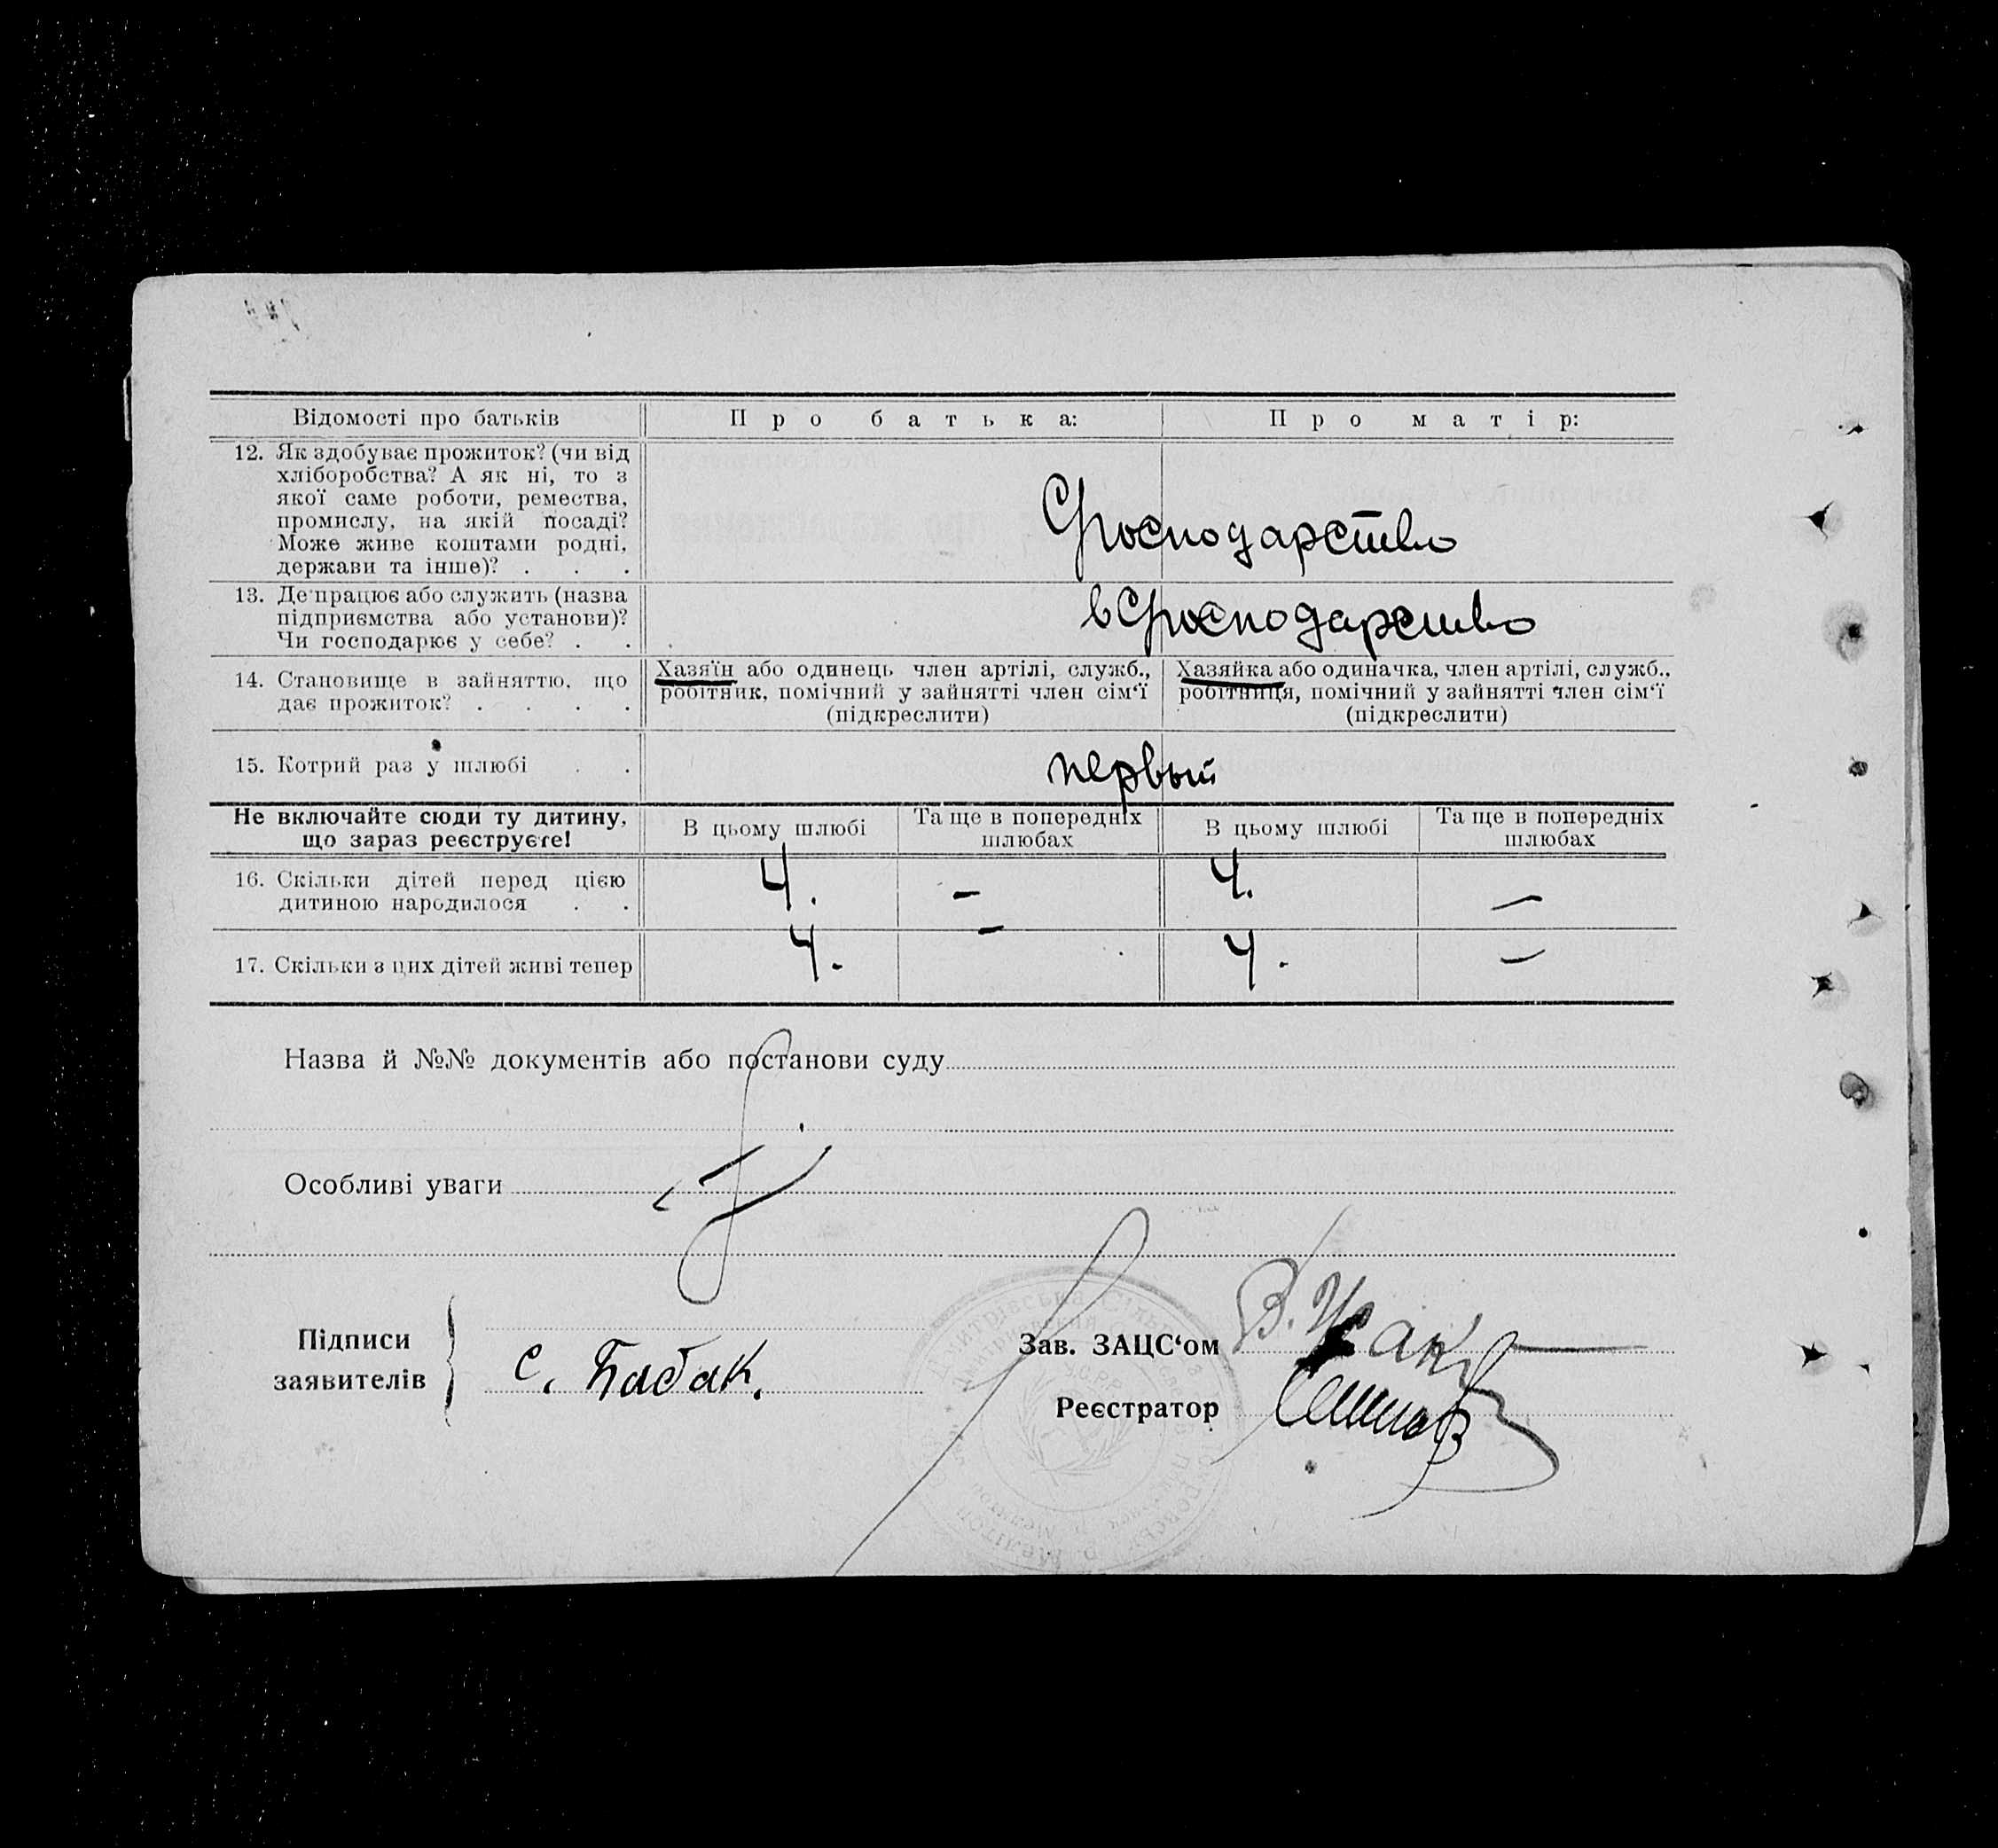 Відомості про батьків
Про батька:
Про матір:
12. Як здобуває прожиток? (чи від
хліборобства? А як ні, то з
якої саме роботи, ремества,
промислу, на якій посаді?
Може живе коштами родні,
держави та інше)? . . .
Господарство
13. Де працює або служить (назва
підприємства або установи)?
Чи господарює у себе? . . .
в Господарство
14. Становище в зайняттю, що
дає прожиток? . . . .
Хазяїн або одинець член артілі, служб.,
робітник, помічний у зайнятті член сім'ї
(підкреслити)
Хазяйка або одиначка, член артілі, служб.,
робітниця, помічний у зайнятті член сім'ї
(підкреслити)
15. Котрий раз у шлюбі . .
первый
Не включайте сюди ту дитину,
що зараз реєструєте!
В цьому шлюбі
Та ще в попередніх
шлюбах
В цьому шлюбі
Та ще в попередніх
шлюбах
16. Скільки дітей перед цією
дитиною народилося . .
4. – 4. –
17. Скільки з цих дітей живі тепер
4. – 4. –
Назва й №№ документів або постанови суду
Особливі уваги
Підписи
заявителів
С. Бабак.
Зав. ЗАЦС'ом
Реєстратор